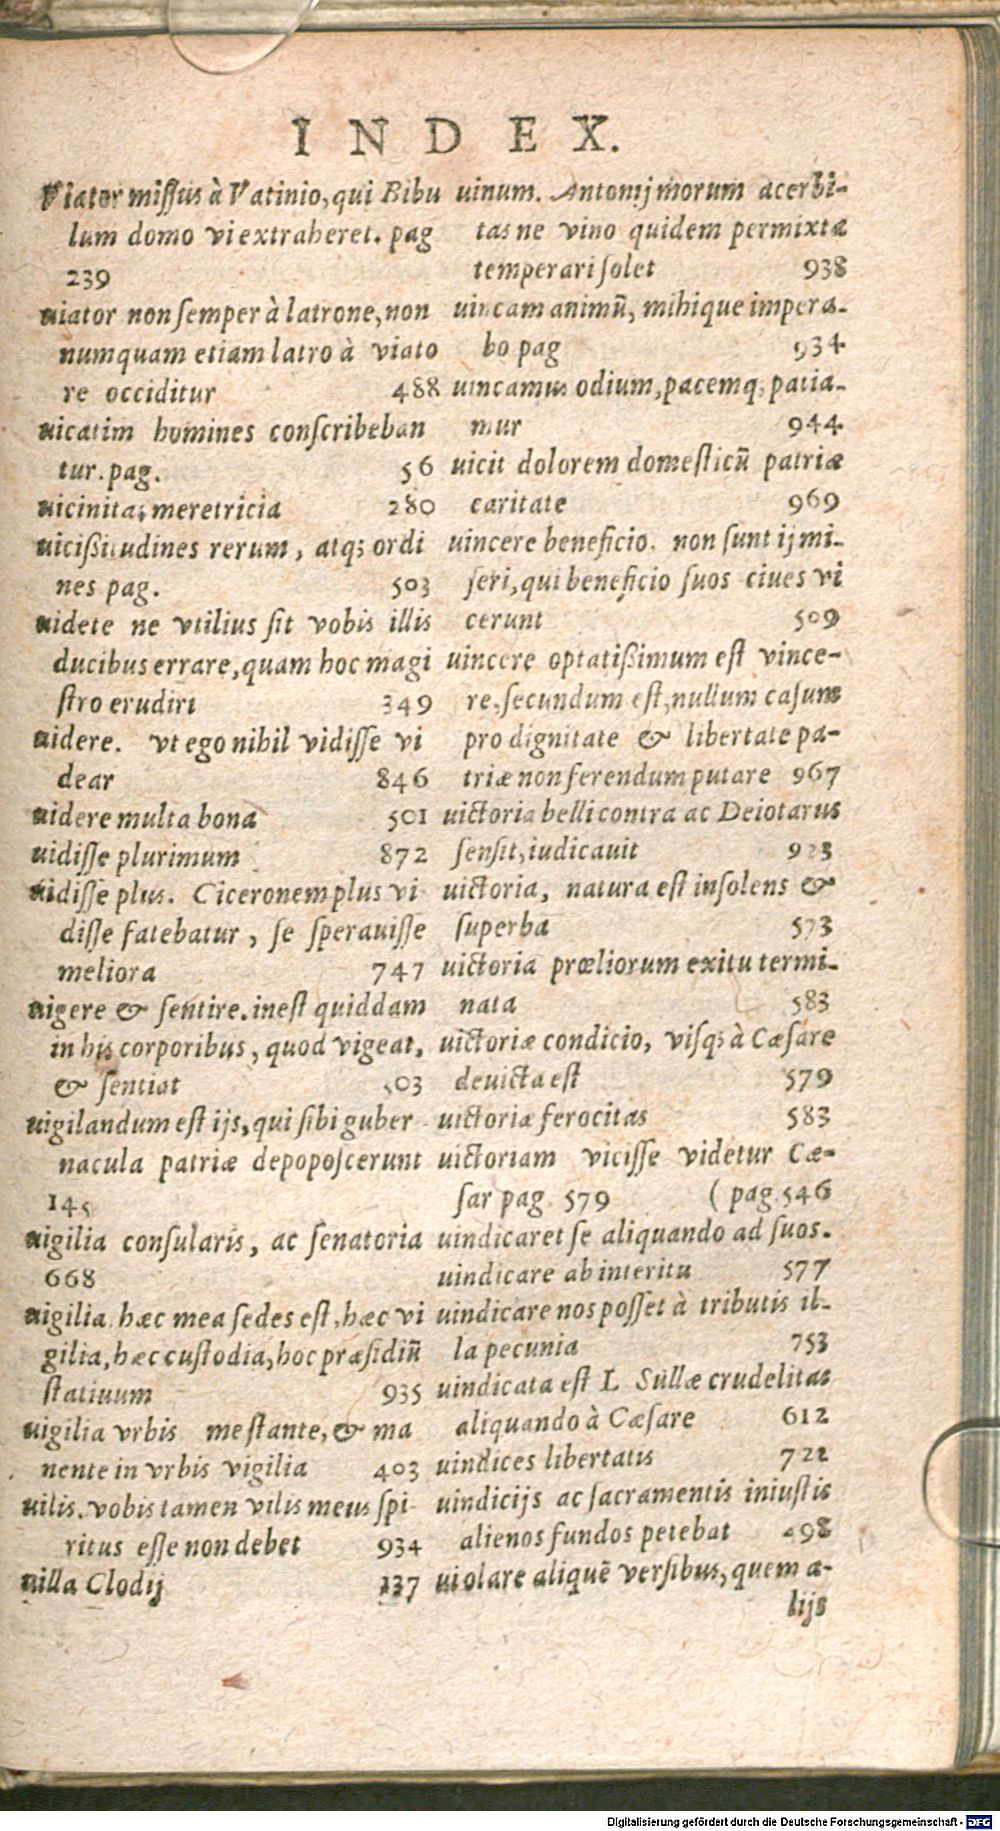 INDEX.
Viator missus à Vatinio, qui Bibu
lum domo vi extraheret. pag
239
uiator non semper à latrone, non
numquam etiam latro à viato
re occiditur 488
uicatim homines conscribeban
tur. pag. 56
uicinitas meretricia 280
uicißitudines rerum, atq; ordi
nes pag. 503
uidete ne vtilius sit vobis illis
ducibus errare, quam hoc magi
stro erudiri 349
uidere. vt ego nihil vidisse vi
dear 846
uidere multa bona 501
uidisse plurimum 872
uidisse plus. Ciceronem plus vi
disse fatebatur, se sperauisse
meliora 747
uigere & sentire. inest quiddam
in his corporibus, quod vigeat,
& sentiat 503
uigilandum est ijs, qui sibi guber
nacula patriæ depoposcerunt
145
uigilia consularis, ac senatoria
668
uigilia. hæc mea sedes est, hæc vi
gilia, hæc custodia, hoc præsidiũ
statiuum 935
uigilia vrbis me stante, & ma
nente in vrbis vigilia 403
uilis. vobis tamen vilis meus spi
ritus esse non debet 934
uilla Clodij 137
uinum. Antonij morum acerbi-
tas ne vino quidem permixta
temperari solet 938
uincam animũ, mihique impera-
bo pag 934
uincamus odium, pacemq; patia-
mur 944
uicit dolorem domesticũ patriæ
caritate 969
uincere beneficio. non sunt ij mi-
seri, qui beneficio suos ciues vi
cerunt 509
uincere optatißimum est vince-
re, secundum est, nullum casum
pro dignitate & libertate pa-
triæ non ferendum putare 967
uictoria belli contra ac Deiotarus
sensit, iudicauit 923
uictoria, natura est insolens &
superba 573
uictoria prœliorum exitu termi-
nata 583
uictoriæ condicio, visq; à Cæsare
deuicta est 579
uictoriæ ferocitas 583
uictoriam vicisse videtur Cæ-
sar pag. 579 ( pag. 546
uindicaret se aliquando ad suos.
uindicare ab interitu 577
uindicare nos posset à tributis il-
la pecunia 753
uindicata est L Sullæ crudelitas
aliquando à Cæsare 612
uindices libertatis 722
uindicijs ac sacramentis iniustis
alienos fundos petebat 498
uiolare aliquẽ versibus, quem a-
lijs
Digitalisierung gefördert durch die Deutsche Forschungsgemeinschaft - DFG